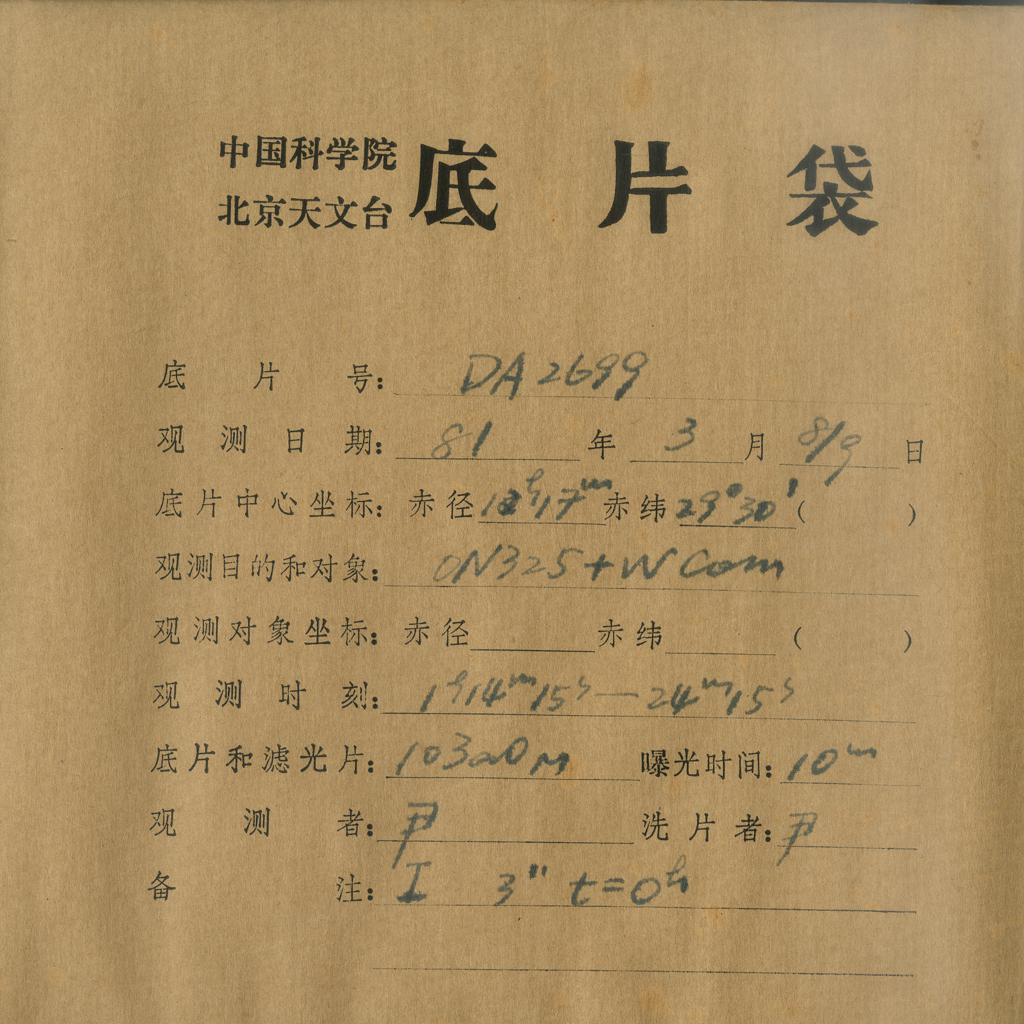 中国科学院
北京天文台
底片袋
底片号：DA2699
观测日期：81年3月8/9日
底片中心坐标：赤径12ʰ17ᵐ赤纬29°30′（ ）
观测目的和对象：ON325+W Com
观测对象坐标：赤径 赤纬 （ ）
观测时刻：1ʰ14ᵐ15ˢ—24ᵐ15ˢ
底片和滤光片：103aO 曝光时间：10ᵐ
观测者：尹 洗片者：尹
备注：I 3″ t=0ʰ